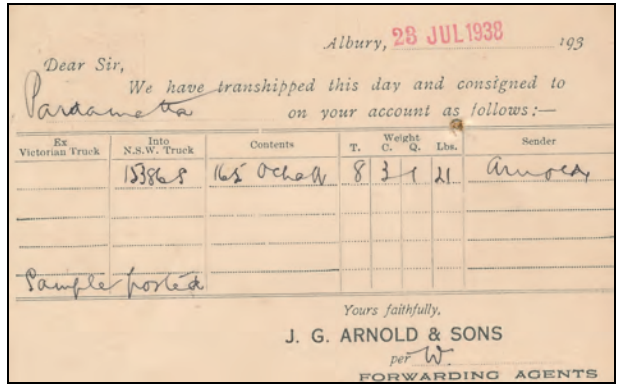 Albury, 23 JUL 1938 193
Dear Sir,
We have transhipped this day and consigned to
Parramatta on your account as follows:—
Ex Victorian Truck Into N.S.W. Truck Contents Weight T. C. Q. Lbs. Sender
165 8 3 1 21 Arnold
Sample posted
Yours faithfully,
J. G. ARNOLD & SONS
per W.
FORWARDING AGENTS